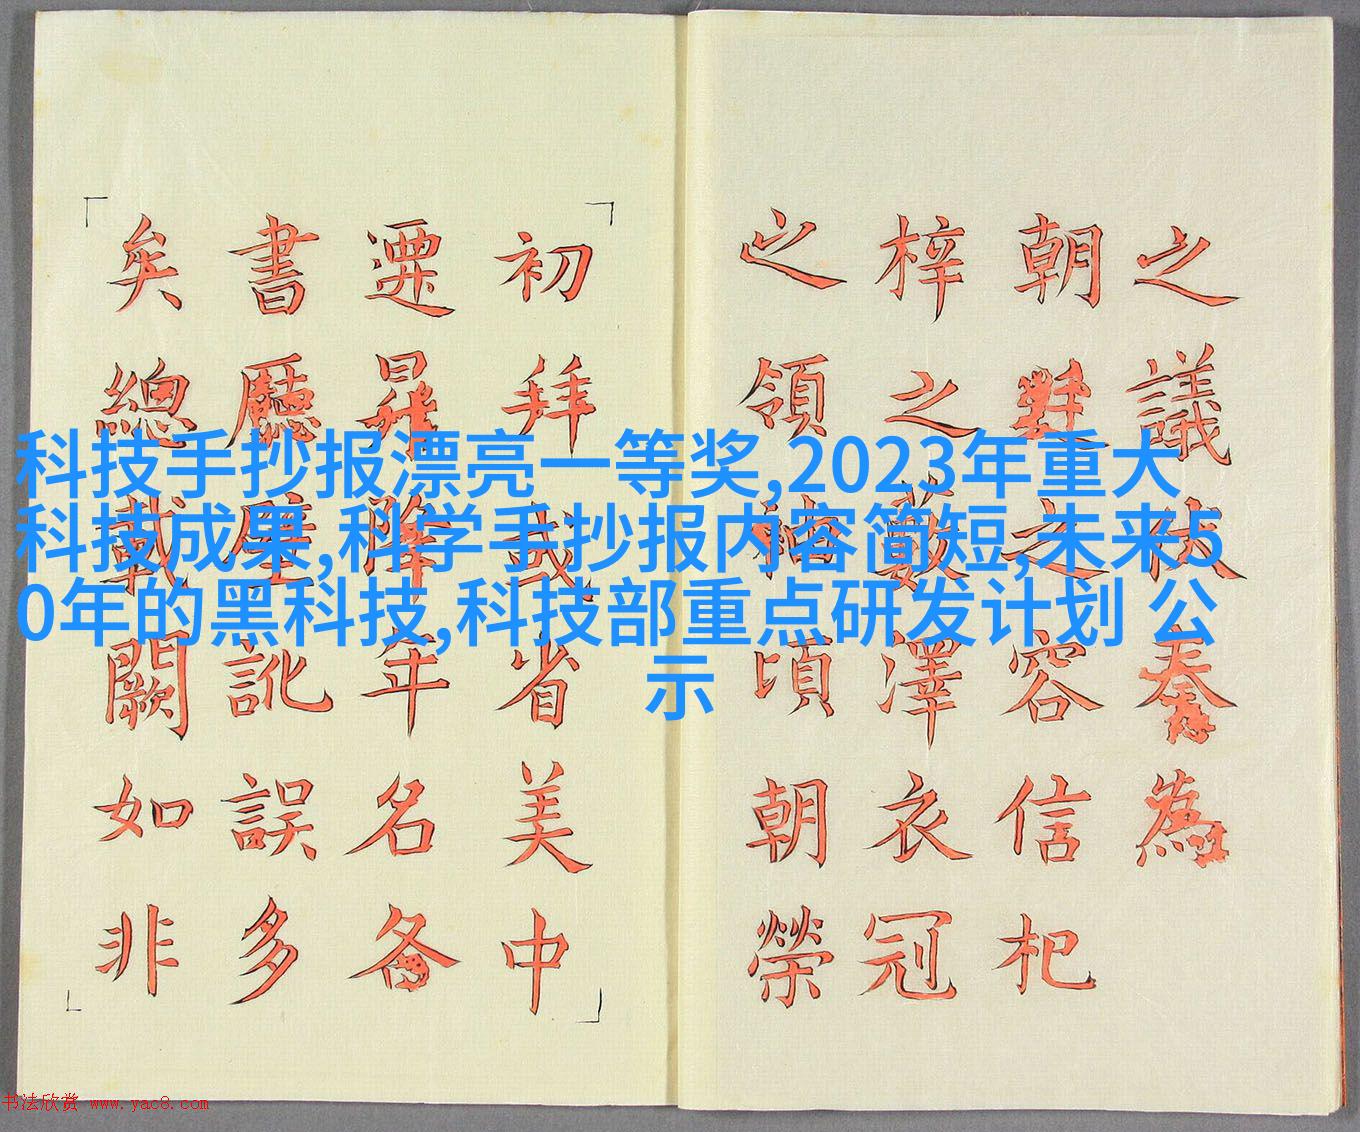 之議奏為
朝野之容信杞
梓之藪澤衣冠
之領袖頃朝榮
初拜省美中
遷昇降年名备
書廳壁訛誤多
矣總載闕如非
科技手抄报漂亮一等奖,2023年重大
科技成果,科学手抄报内容简短,未来5
0年的黑科技,科技部重点研发计划 公
示
书法欣赏 www.yac8.com